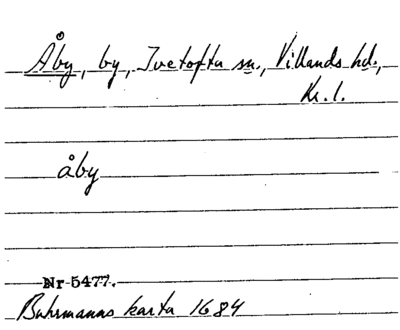 Åby, by, Ivetofta sn., Villands hd.,
Kr. l.
åby
Nr 5477.
Buhrmanns karta 1684